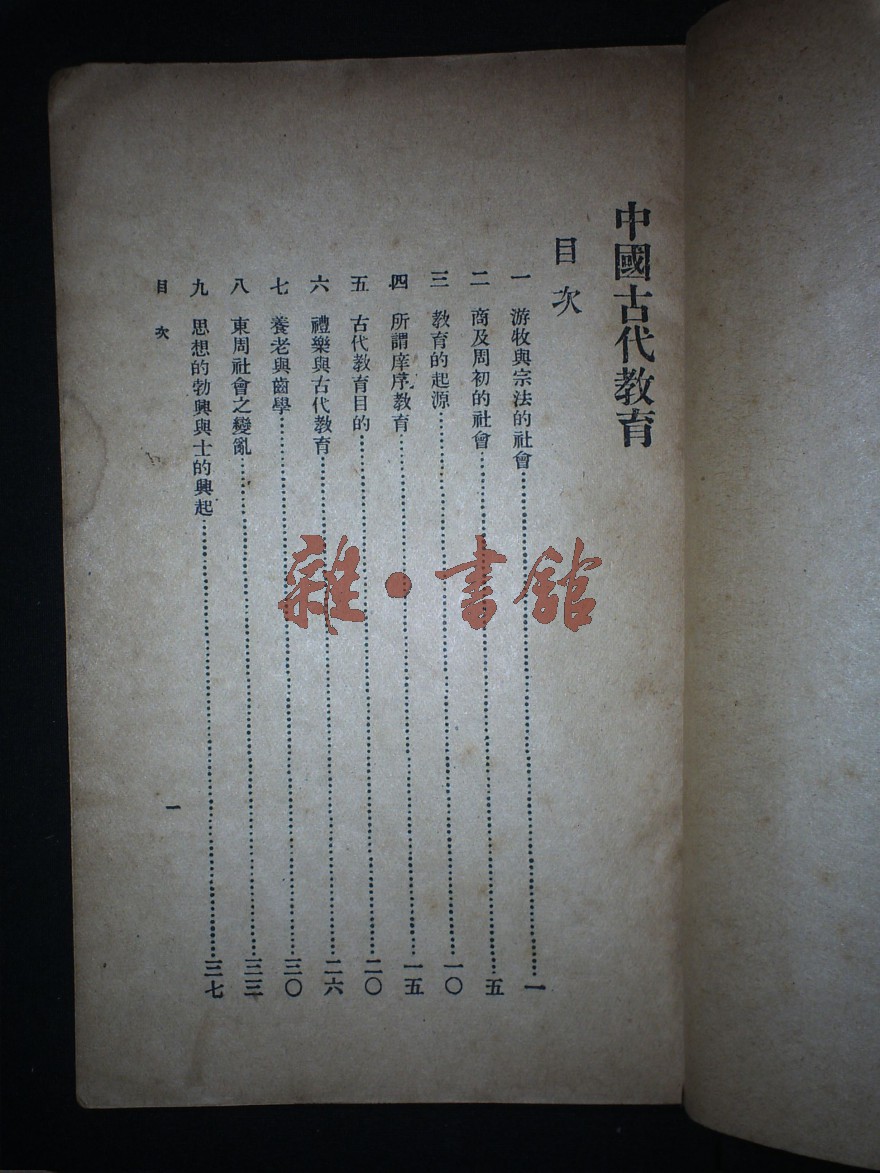 中國古代教育
目次
一 游牧與宗法的社會…一
二 商及周初的社會…五
三 教育的起源…一〇
四 所謂庠序教育…一五
五 古代教育目的…二〇
六 禮樂與古代教育…二六
七 養老與齒學…三〇
八 東周社會之變亂…三三
九 思想的勃興與士的興起…三七
目次
一
雜·書館